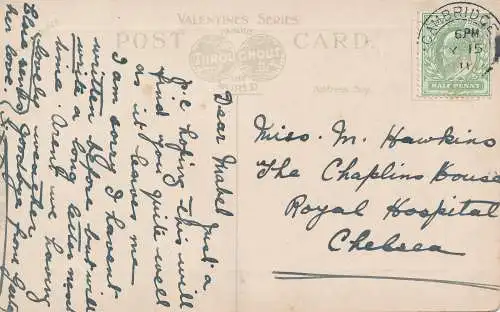 VALENTINES SERIES
FAMOUS
THROUGHOUT
THE
WORLD
POST CARD.
Address Only.
CAMBRIDGE
6 PM
Y 15
11
HALF PENNY
Miss. M. Hawkins
The Chaplins House
Royal Hospital
Chelsea
Dear Mabel Just a
P.C hoping this will
find you quite well
as it leaves me
I am sorry I havent
written before but will
write a long letter next
time. Arent we having
lovely weather
Goodbye from
love.